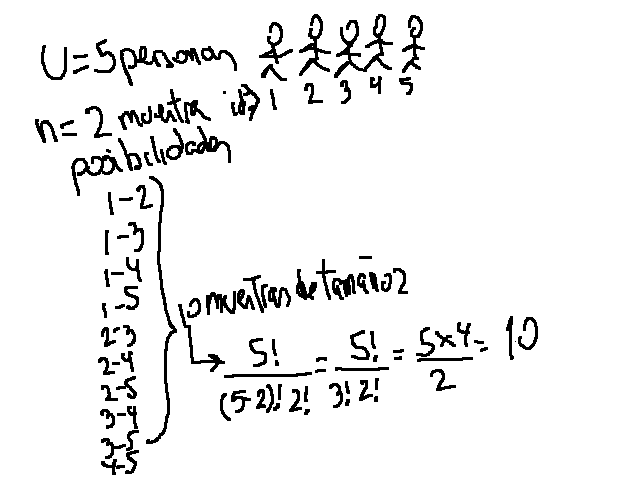 U=5 personas
1 2 3 4 5
n=2 muestra id?
posibilidades
1-2
1-3
1-4
1-5
2-3
2-4
2-5
3-4
3-5
4-5
10 muestras de tamaño 2
5!/(5-2)!2! = 5!/3!2! = 5x4/2 = 10